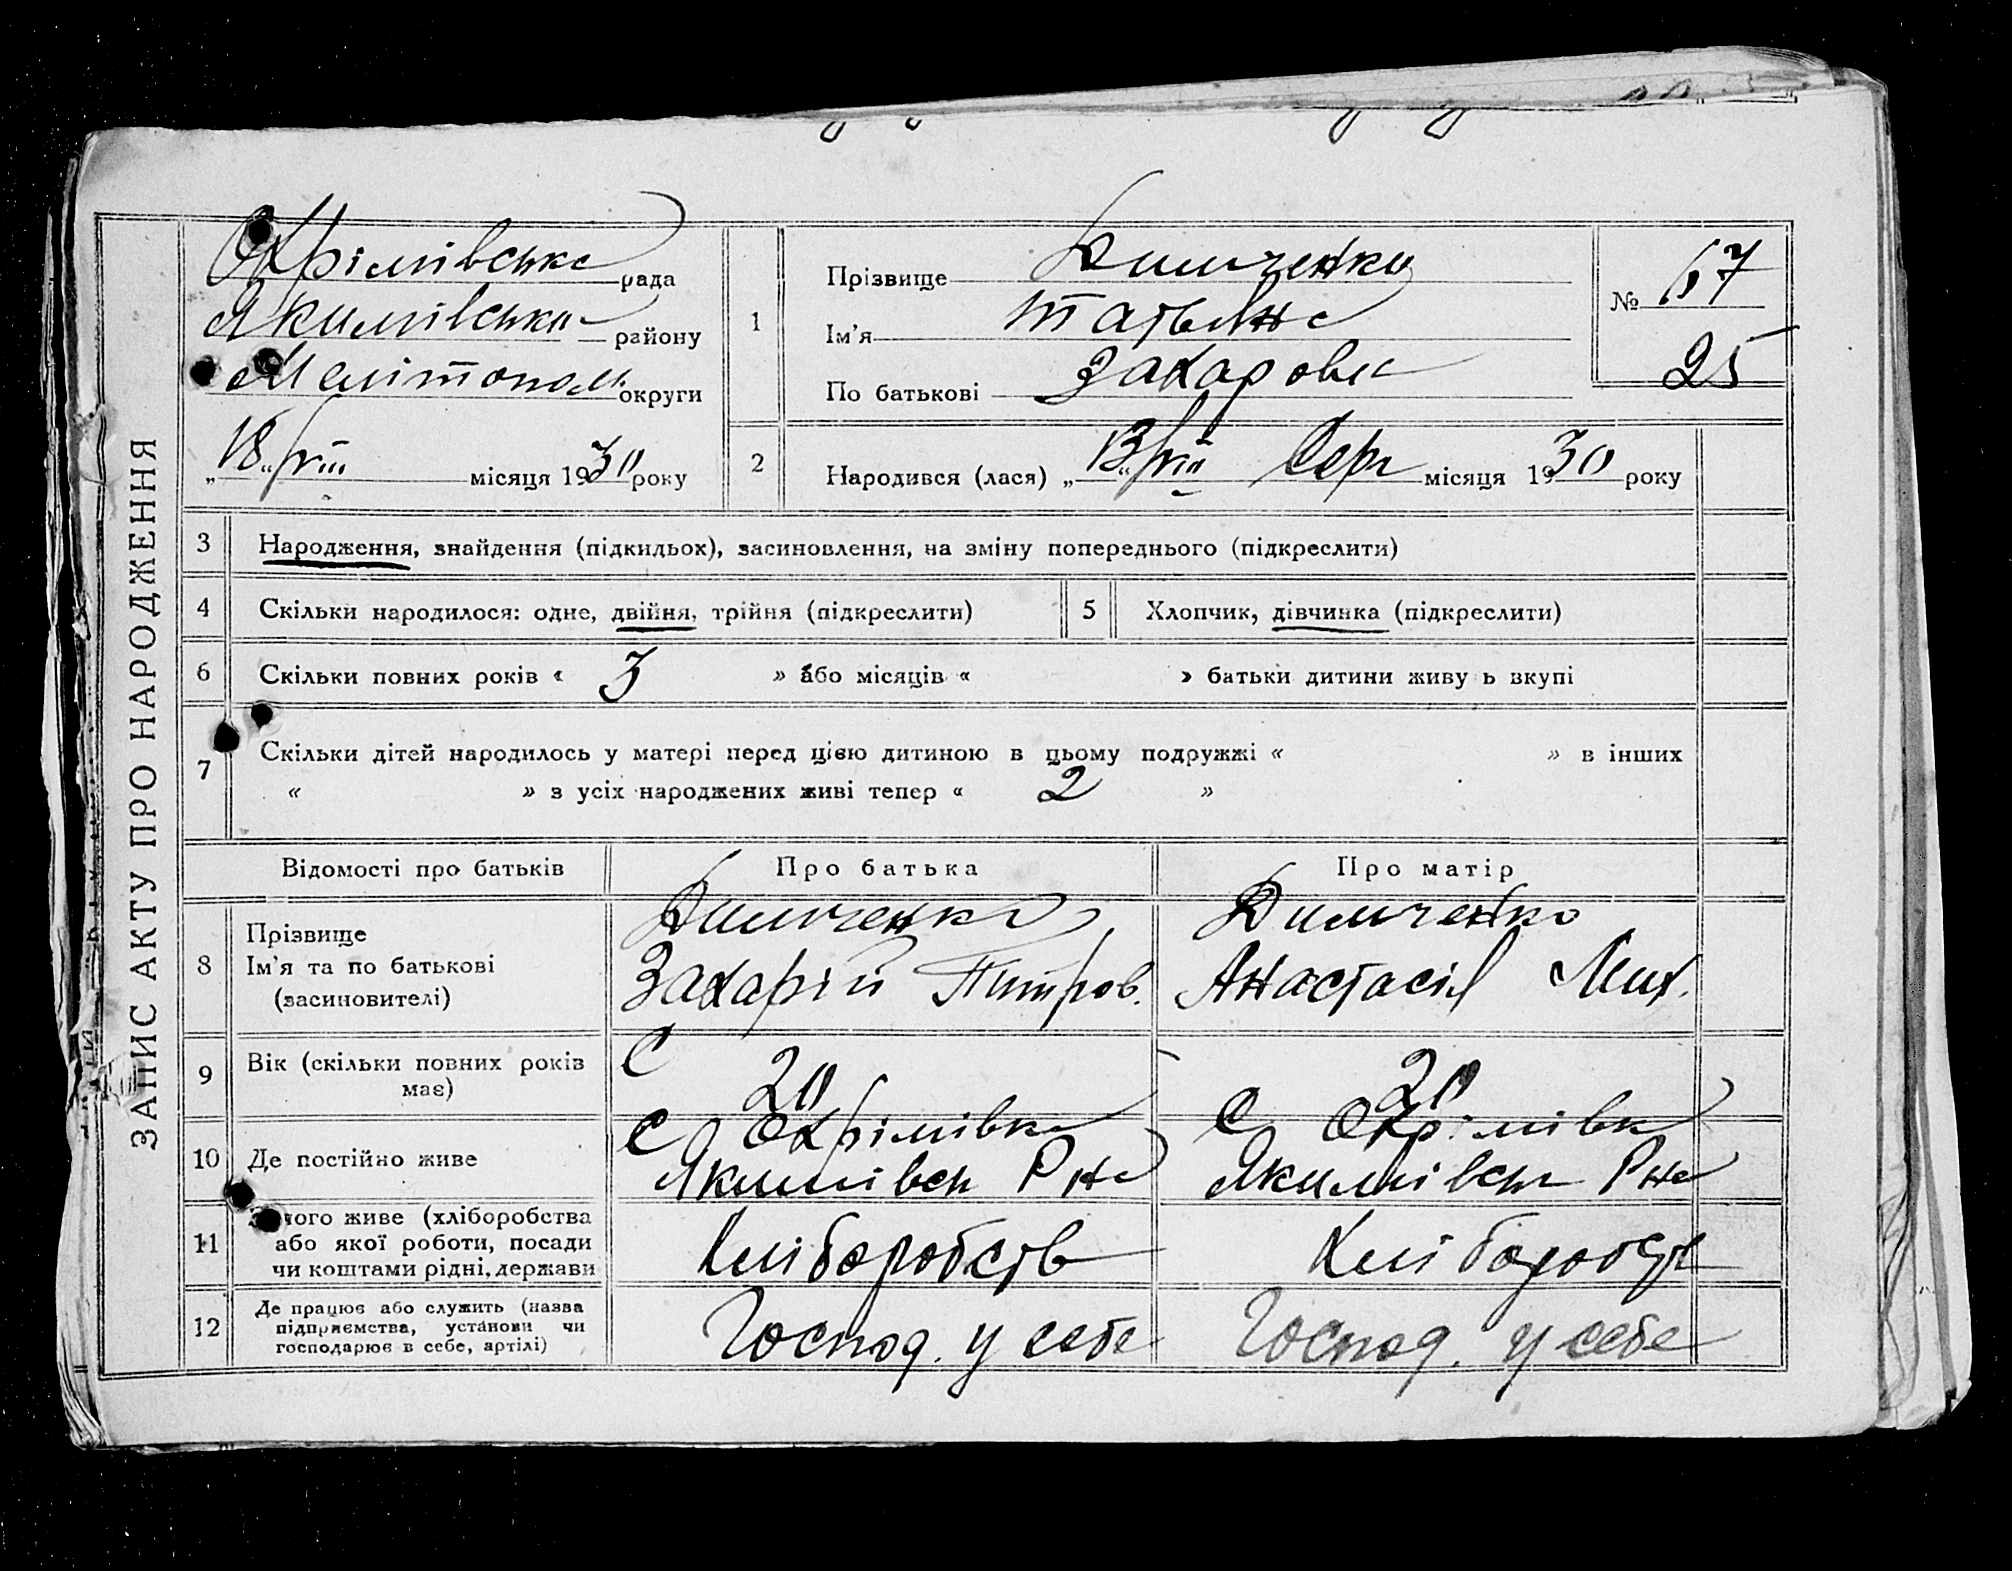 ЗАПИС АКТУ ПРО НАРОДЖЕННЯ
Охрімівська рада
Якимівськи району
Мелітополь. округи
„18„ VIII місяця 1930 року
1
Прізвище Димченко
Ім'я Татьяна
По батькові Захаровна
№ 67
25
2
Народився (лася) „13„ VIII Серп місяця 1930 року
3 Народження, знайдення (підкидьох), засиновлення, на зміну попереднього (підкреслити)
4 Скільки народилося: одне, двійня, трійня (підкреслити)
5 Хлопчик, дівчинка (підкреслити)
6 Скільки повних років « 3 » або місяців « » батьки дитини живу ь вкупі
7 Скільки дітей народилось у матері перед цією дитиною в цьому подружжі « » в інших
« » з усіх народжених живі тепер « 2 »
Відомості про батьків Про батька Про матір
8 Прізвище
Ім'я та по батькові
(засиновителі)
Димченко
Захарій Питров.
Димченко
Анастасія Мих.
9 Вік (скільки повних років
має)
20
20
10 Де постійно живе
С Охрімівка
Якимівськ Рна
С Охрімівка
Якимівськ Рна
11 чого живе (хліборобства
або якої роботи, посади
чи коштами рідні, держави
Хліборобств
Хліборобств
12 Де працює або служить (назва
підприємства, установи чи
господарює в себе, артілі)
Господ. у себе
Господ. у себе